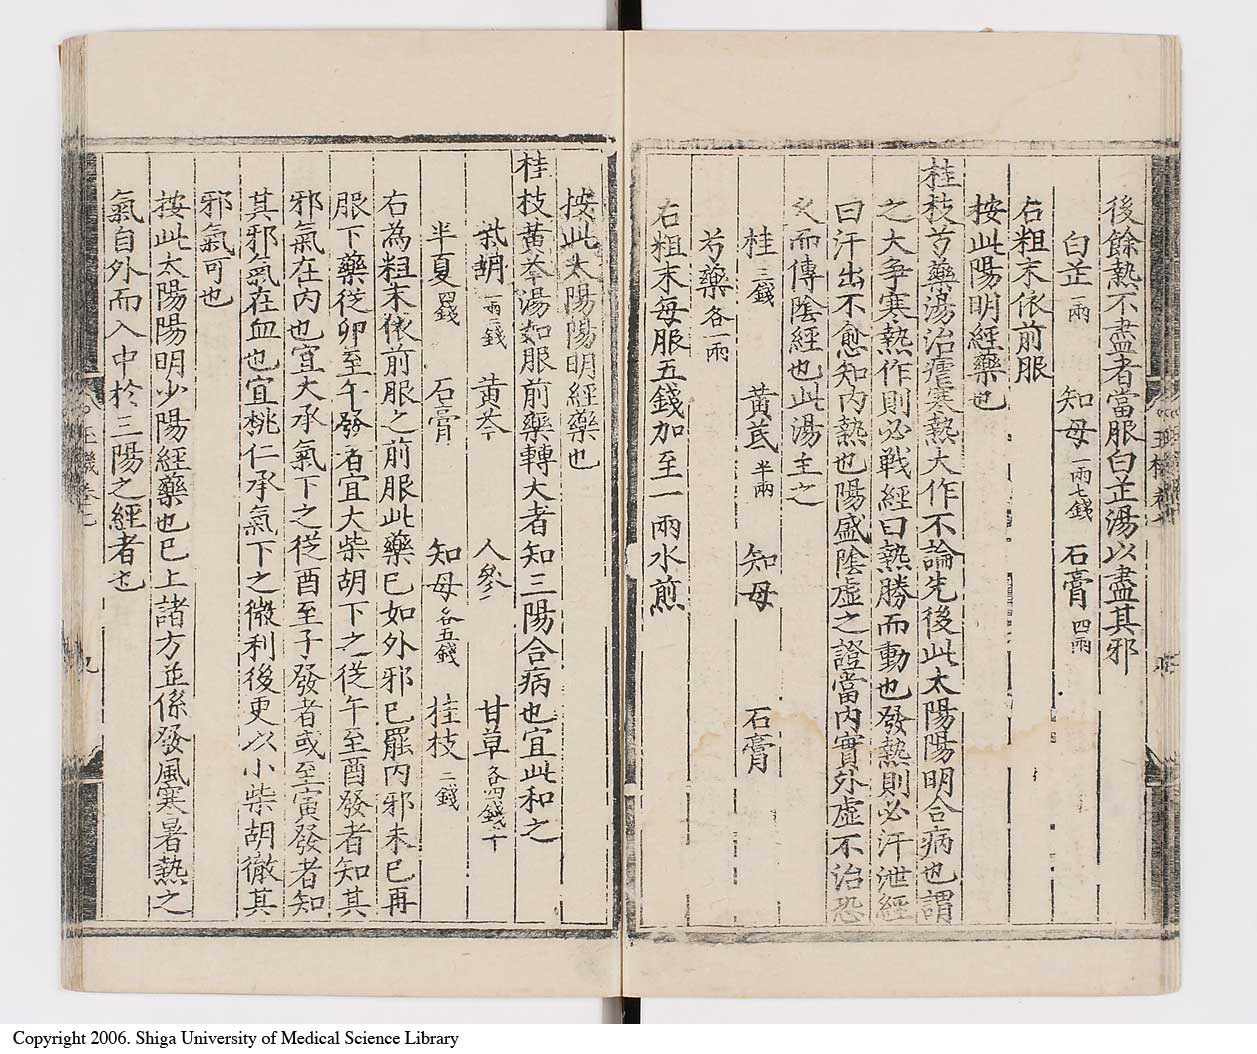 後餘熱不盡者當服白芷湯以盡其邪
白芷一兩 知母一兩七錢 石膏四兩
右粗末依前服
按此陽明經藥也
桂枝芍藥湯治瘧寒熱大作不論先後此太陽陽明合病也謂
之大爭寒熱作則必戰經曰熱勝而動也發熱則必汗泄經
曰汗出不愈知內熱也陽盛陰虛之證當內實外虛不治恐
久而傳陰經也此湯主之
桂三錢 黃芪半兩 知母 石膏
芍藥各一兩
右粗末每服五錢加至一兩水煎
按此太陽陽明經藥也
桂枝黃芩湯如服前藥轉大者知三陽合病也宜此和之
柴胡一兩二錢 黃芩 人參 甘草各四錢半
半夏四錢 石膏 知母各五錢 桂枝二錢
右為粗末依前服之前服此藥已如外邪已罷內邪未已再
服下藥從卯至午發者宜大柴胡下之從午至酉發者知其
邪氣在內也宜大承氣下之從酉至子發者或至寅發者知
其邪氣在血也宜桃仁承氣下之微利後更以小柴胡徹其
邪氣可也
按此太陽陽明少陽經藥也已上諸方並係發風寒暑熱之
氣自外而入中於三陽之經者也
Copyright 2006. Shiga University of Medical Science Library